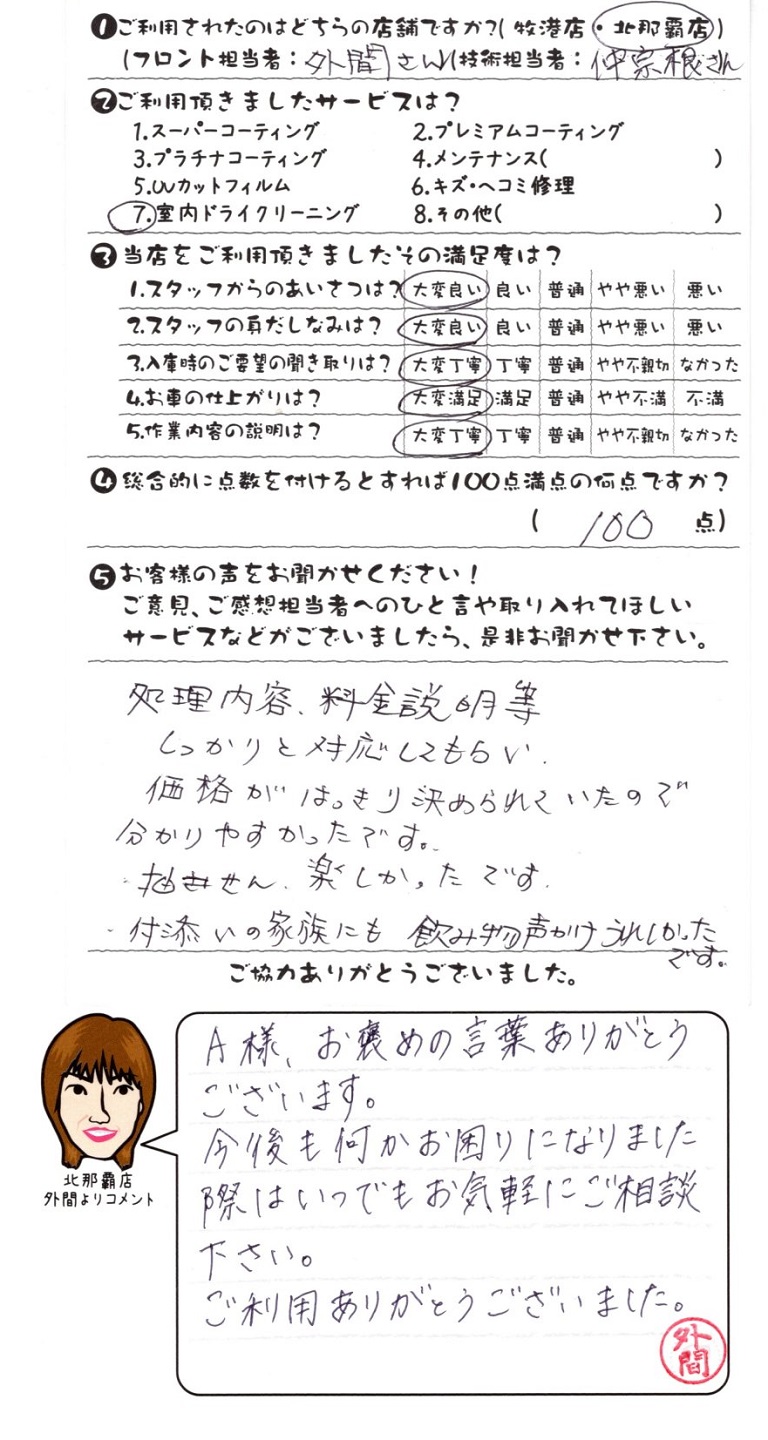 ❶ご利用されたのはどちらの店舗ですか?(牧港店・北那覇店)
(フロント担当者:外間さん)(技術担当者:仲宗根さん
❷ご利用頂きましたサービスは?
1.スーパーコーティング 2.プレミアムコーティング
3.プラチナコーティング 4.メンテナンス( )
5.UVカットフィルム 6.キズ・ヘコミ修理
7.室内ドライクリーニング 8.その他( )
❸当店をご利用頂きましたその満足度は?
1.スタッフからのあいさつは? 大変良い 良い 普通 やや悪い 悪い
2.スタッフの身だしなみは? 大変良い 良い 普通 やや悪い 悪い
3.入庫時のご要望の聞き取りは? 大変丁寧 丁寧 普通 やや不親切 なかった
4.お車の仕上がりは? 大変満足 満足 普通 やや不満 不満
5.作業内容の説明は? 大変丁寧 丁寧 普通 やや不親切 なかった
❹総合的に点数を付けるとすれば100点満点の何点ですか?
( 100 点)
❺お客様の声をお聞かせください!
ご意見、ご感想担当者へのひと言や取り入れてほしい
サービスなどがございましたら、是非お聞かせ下さい。
処理内容、料金説明等
しっかりと対応してもらい、
価格がはっきり決められていたので
分かりやすかったです。
・抽せん、楽しかったです。
・付添いの家族にも飲み物声かけうれしかった
です。
ご協力ありがとうございました。
A様、お褒めの言葉ありがとう
ございます。
今後も何かお困りになりました
際はいつでもお気軽にご相談
下さい。
ご利用ありがとうございました。
北那覇店
外間よりコメント
外間